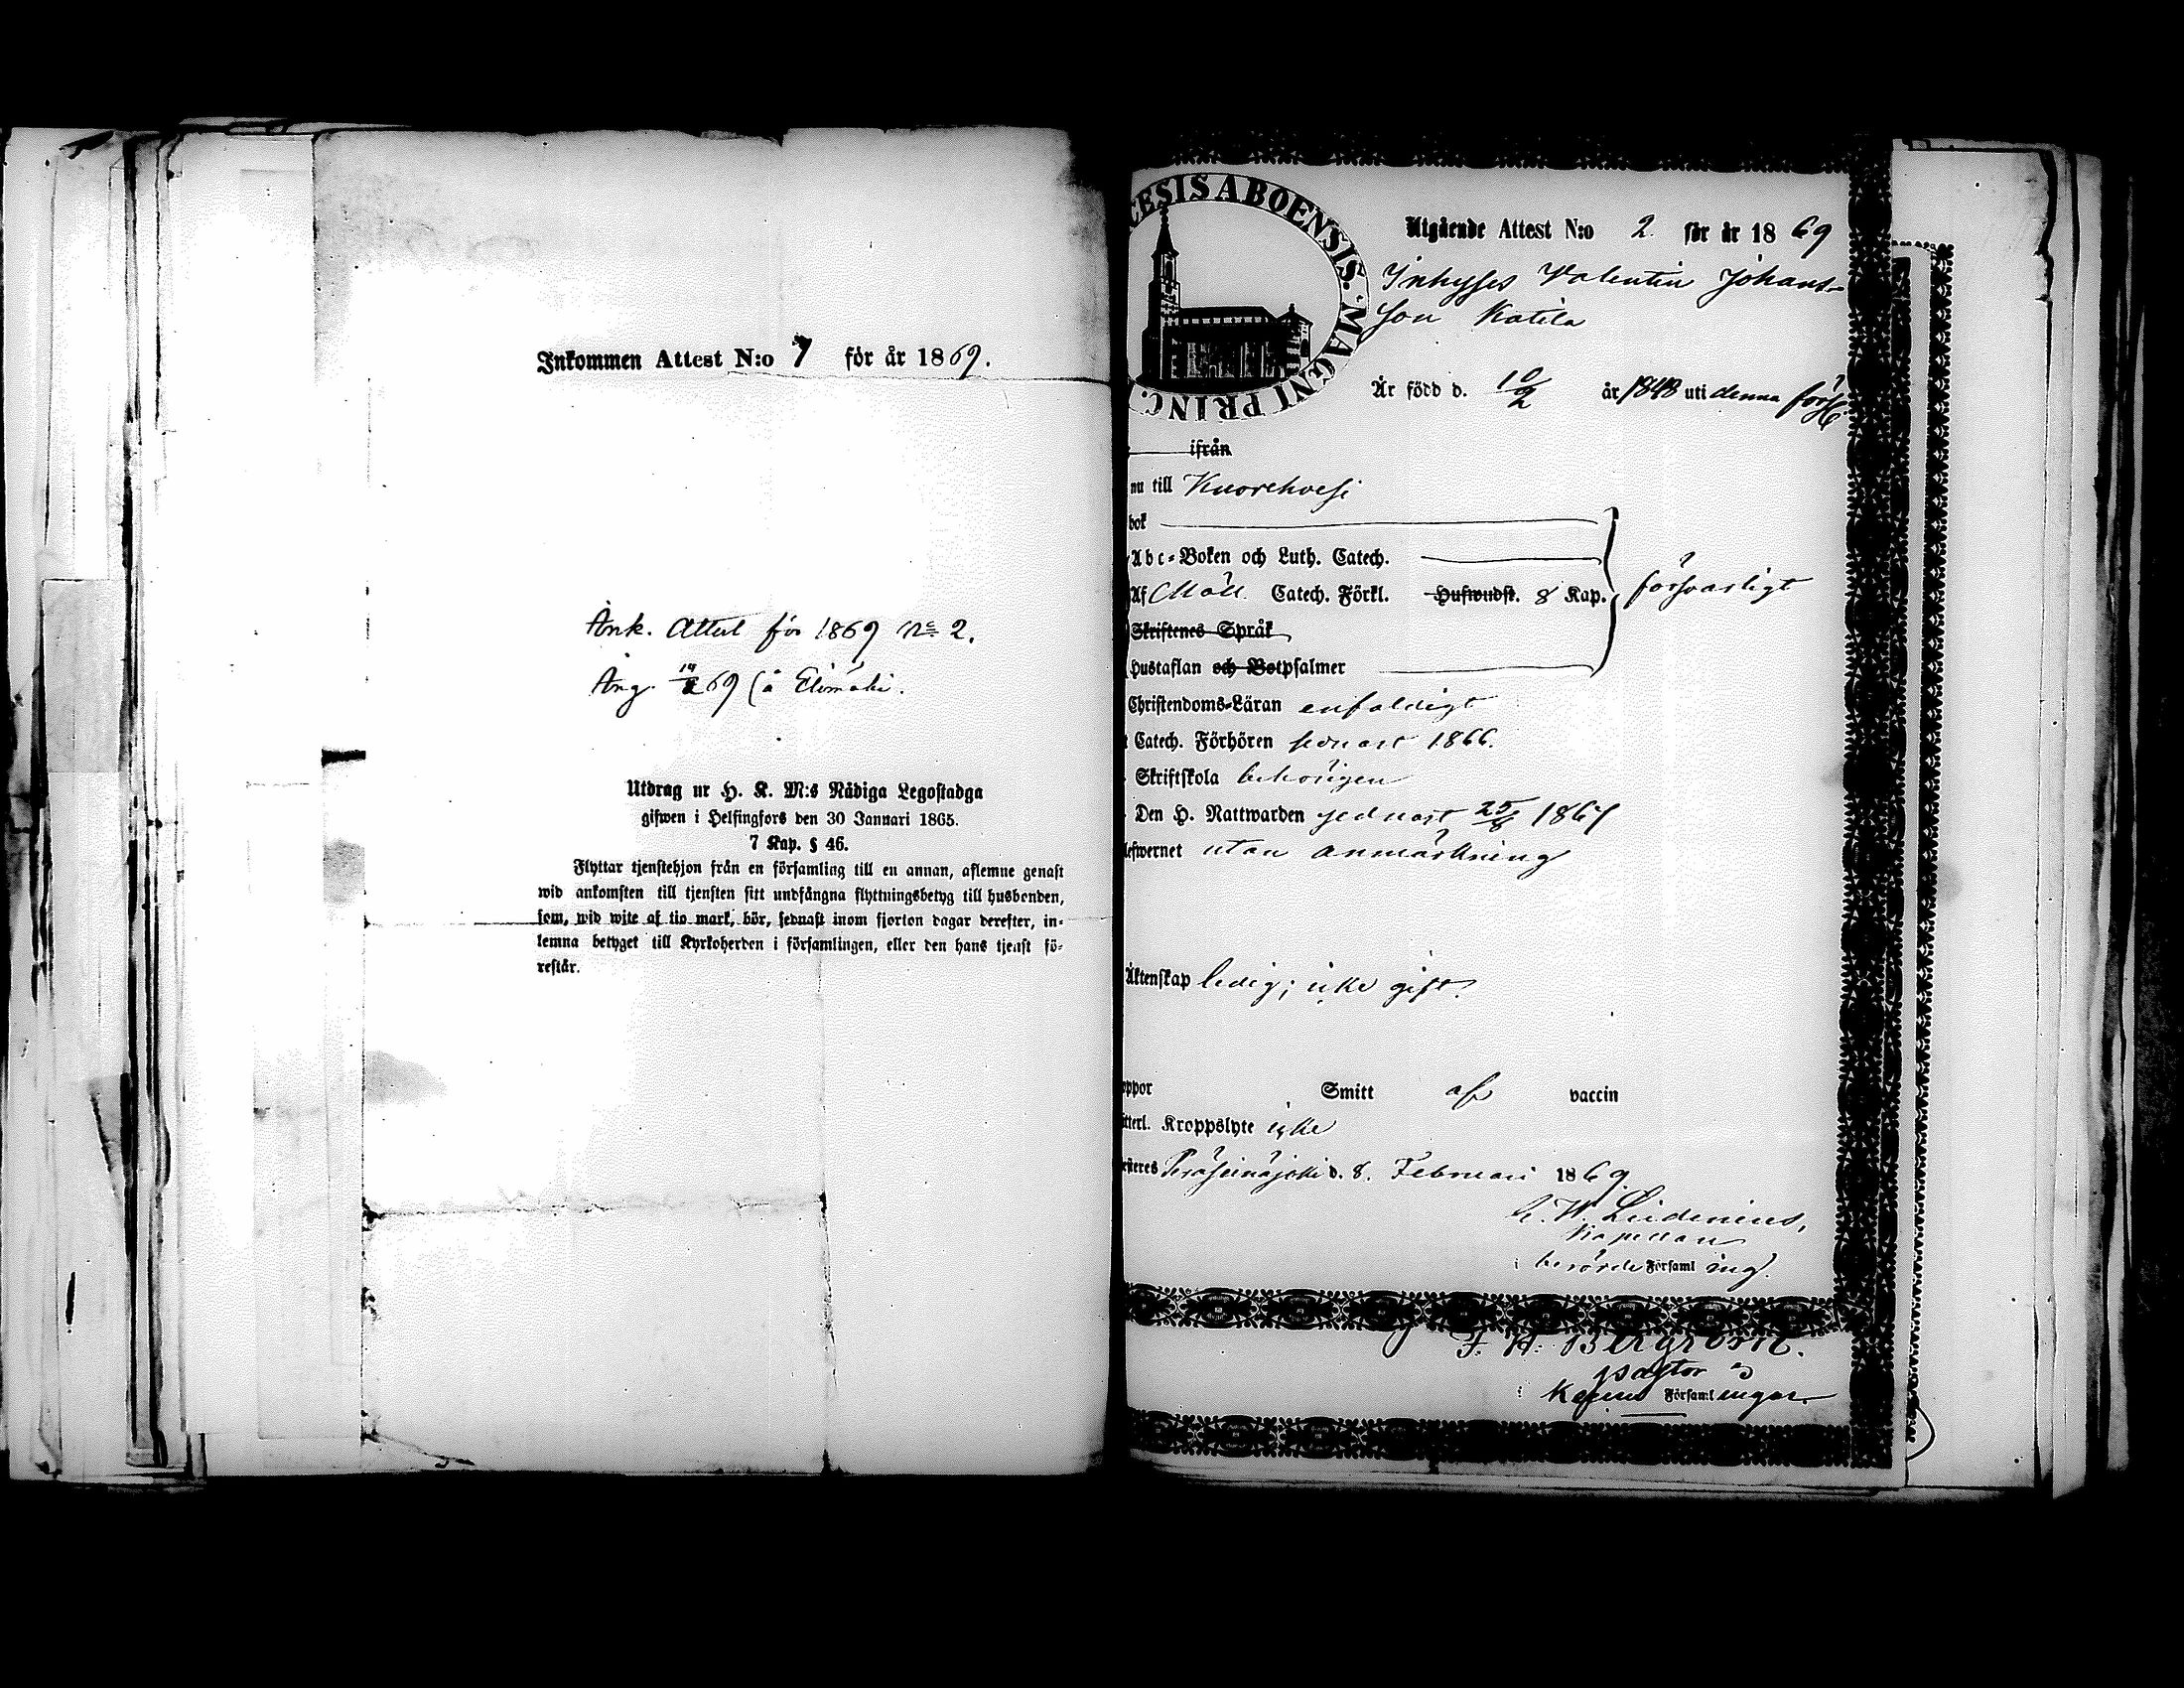 Inkommen Attest N:o 7 för år 1869.
Ank. Attest för 1869 No 2.
Ang. 69 (å Elimäki.
Utdrag ur H. K. M:s Nådiga Legostadga
gifwen i Helsingfors den 30 Januari 1865.
7 Kap. § 46.
Flyttar tjenstehjon från en församling till en annan, aflemne genast
wid ankomsten till tjensten sitt undfångna flyttningsbetyg till husbonden,
som, wid wite af tio mark, bör, sednast inom fjorton dagar derefter, in-
lemna betyget till Kyrkoherden i församlingen, eller den hans tjenst fö-
restår.
CESIS ABOENSIS. MAGNI PRINC.
Utgående Attest N:o 2 för år 1869
Inhyses Valentin Johans-
son Katila
Är född d. 10/2 år 1848 uti denna förs.
ifrån
nu till Kuorehvesi
bok
Abc-Boken och Luth. Catech.
Af Möll. Catech. Förkl. Hufwudst. 8 Kap. försvarligt
Skriftenes Språk
Hustaflan och Botpsalmer
Christendoms-Läran enfaldigt
Catech. Förhören sednast 1866.
Skriftskola behörigen
Den H. Nattwarden sednast 25/8 1867
lefwernet utan anmärkning
Äktenskap ledig; icke gift.
oppor Smitt af vaccin
itterl. Kroppslyte icke
esteres Peräseinäjoki d. 8. Februari 1869.
Lindenius,
Kapellan
i berörde Församling.
F. H. Bergroth.
Pastor
i Församlingar.